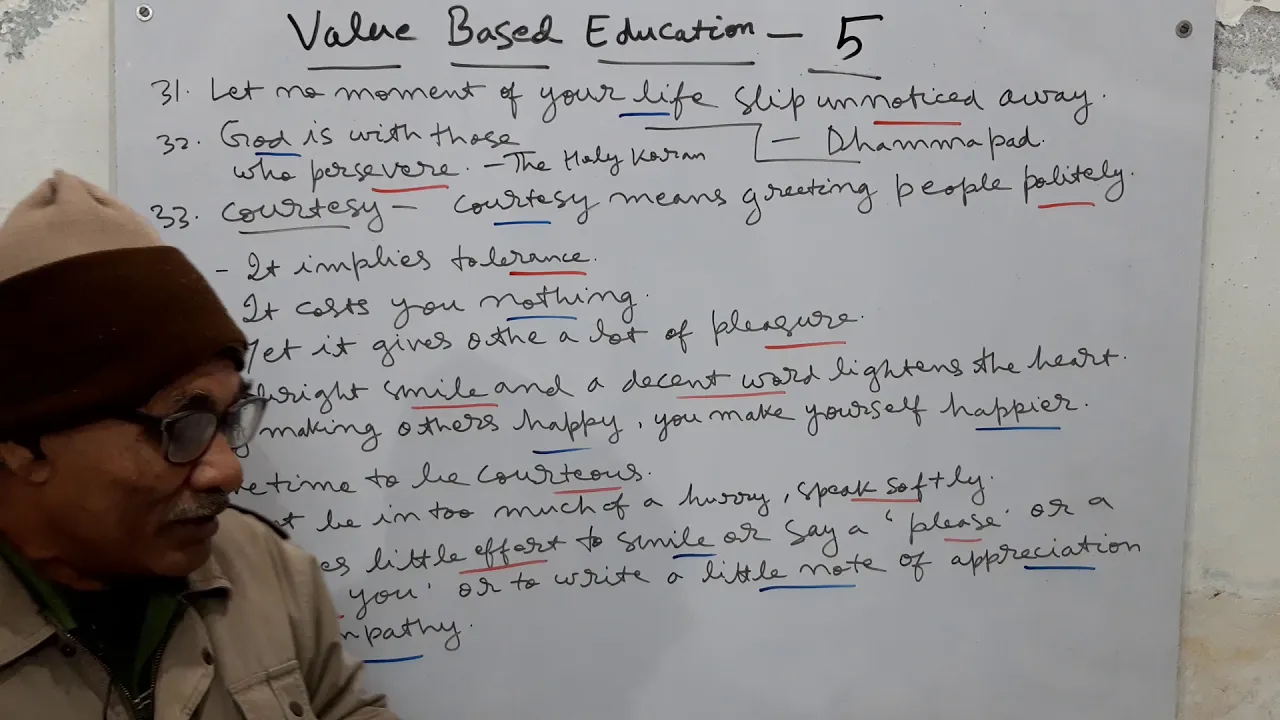 Value Based Education - 5
31. Let no moment of your life slip unnoticed away.
- Dhammapad.
32. God is with those
who persevere. - The Holy Koran
33. Courtesy - Courtesy means greeting people politely.
- It implies tolerance.
It costs you nothing.
Yet it gives othe a lot of pleasure.
bright smile and a decent word lightens the heart.
making others happy, you make yourself happier.
time to be courteous.
be in too much of a hurry, speak softly.
little effort to smile or say a 'please' or a
you' or to write a little note of appreciation